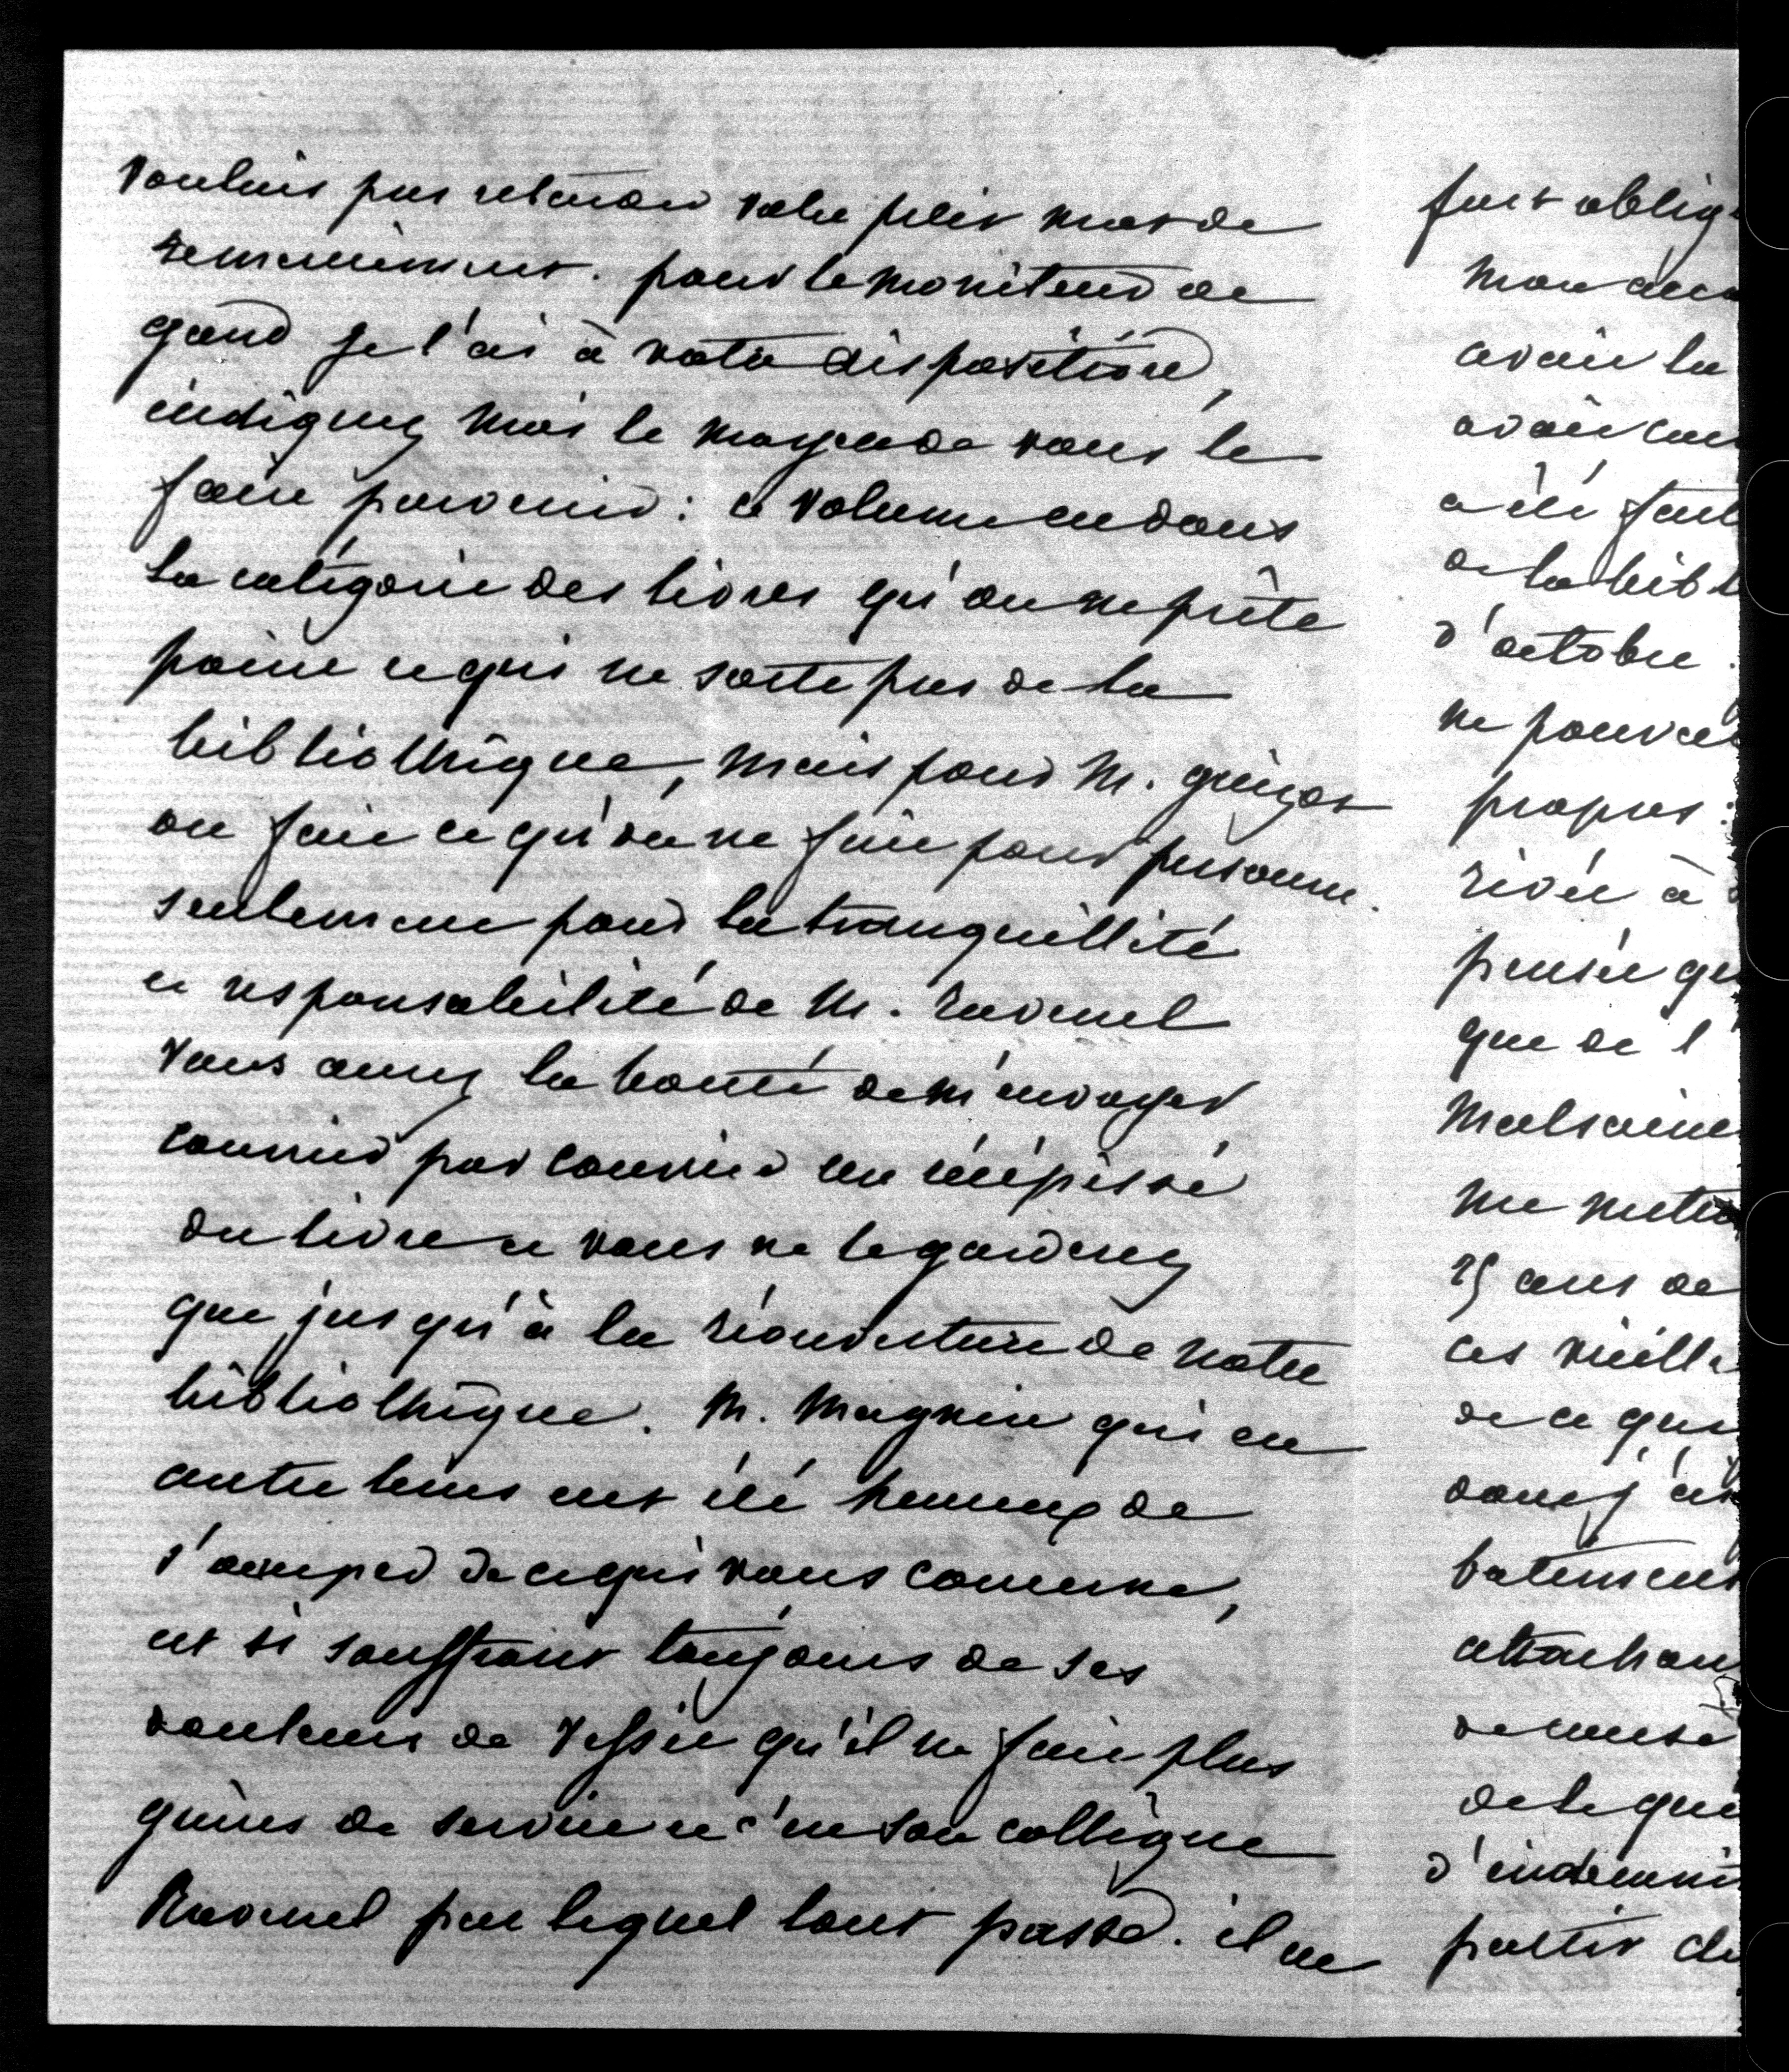 voulais pas retarder votre petit mot de
remerciement. pour le moniteur de
gand je l'ai à votre disposition,
indiquez moi le moyen de vous le
faire parvenir : ce volume est dans
la catégorie des livres qu'on ne prête
point et qui ne sorte pas de la
bibliothèque, mais pour M. guizot
on fait ce qu'on ne fait pour personne.
seulement pour la tranquillité
et responsabilité de M. ravenel
vous aurez la bonté de m'envoyer
courrier par courrier un récépissé
du livre et vous ne le garderez
que jusqu'à la réouverture de notre
bibliothèque. M. Magnin qui en
autre tems eut été heureux de
s'occuper de ce qui vous concerne,
est si souffrant toujours de ses
douleurs de vessie qu'il ne fait plus
guères de service et c'est son collègue
Ravenel par lequel tout passe. il ne
fort oblig
mon acc
avoir lu
avoir
a été fait
de la bibl
d'octobre.
ne pouva
propres :
rivée à
pensée qu
que de l'
malsaine
me mettr
25 ans de
ces vieille
de ce qui
dont j'ai
batiment
attachan
de
de le qui
d'indemni
partir de